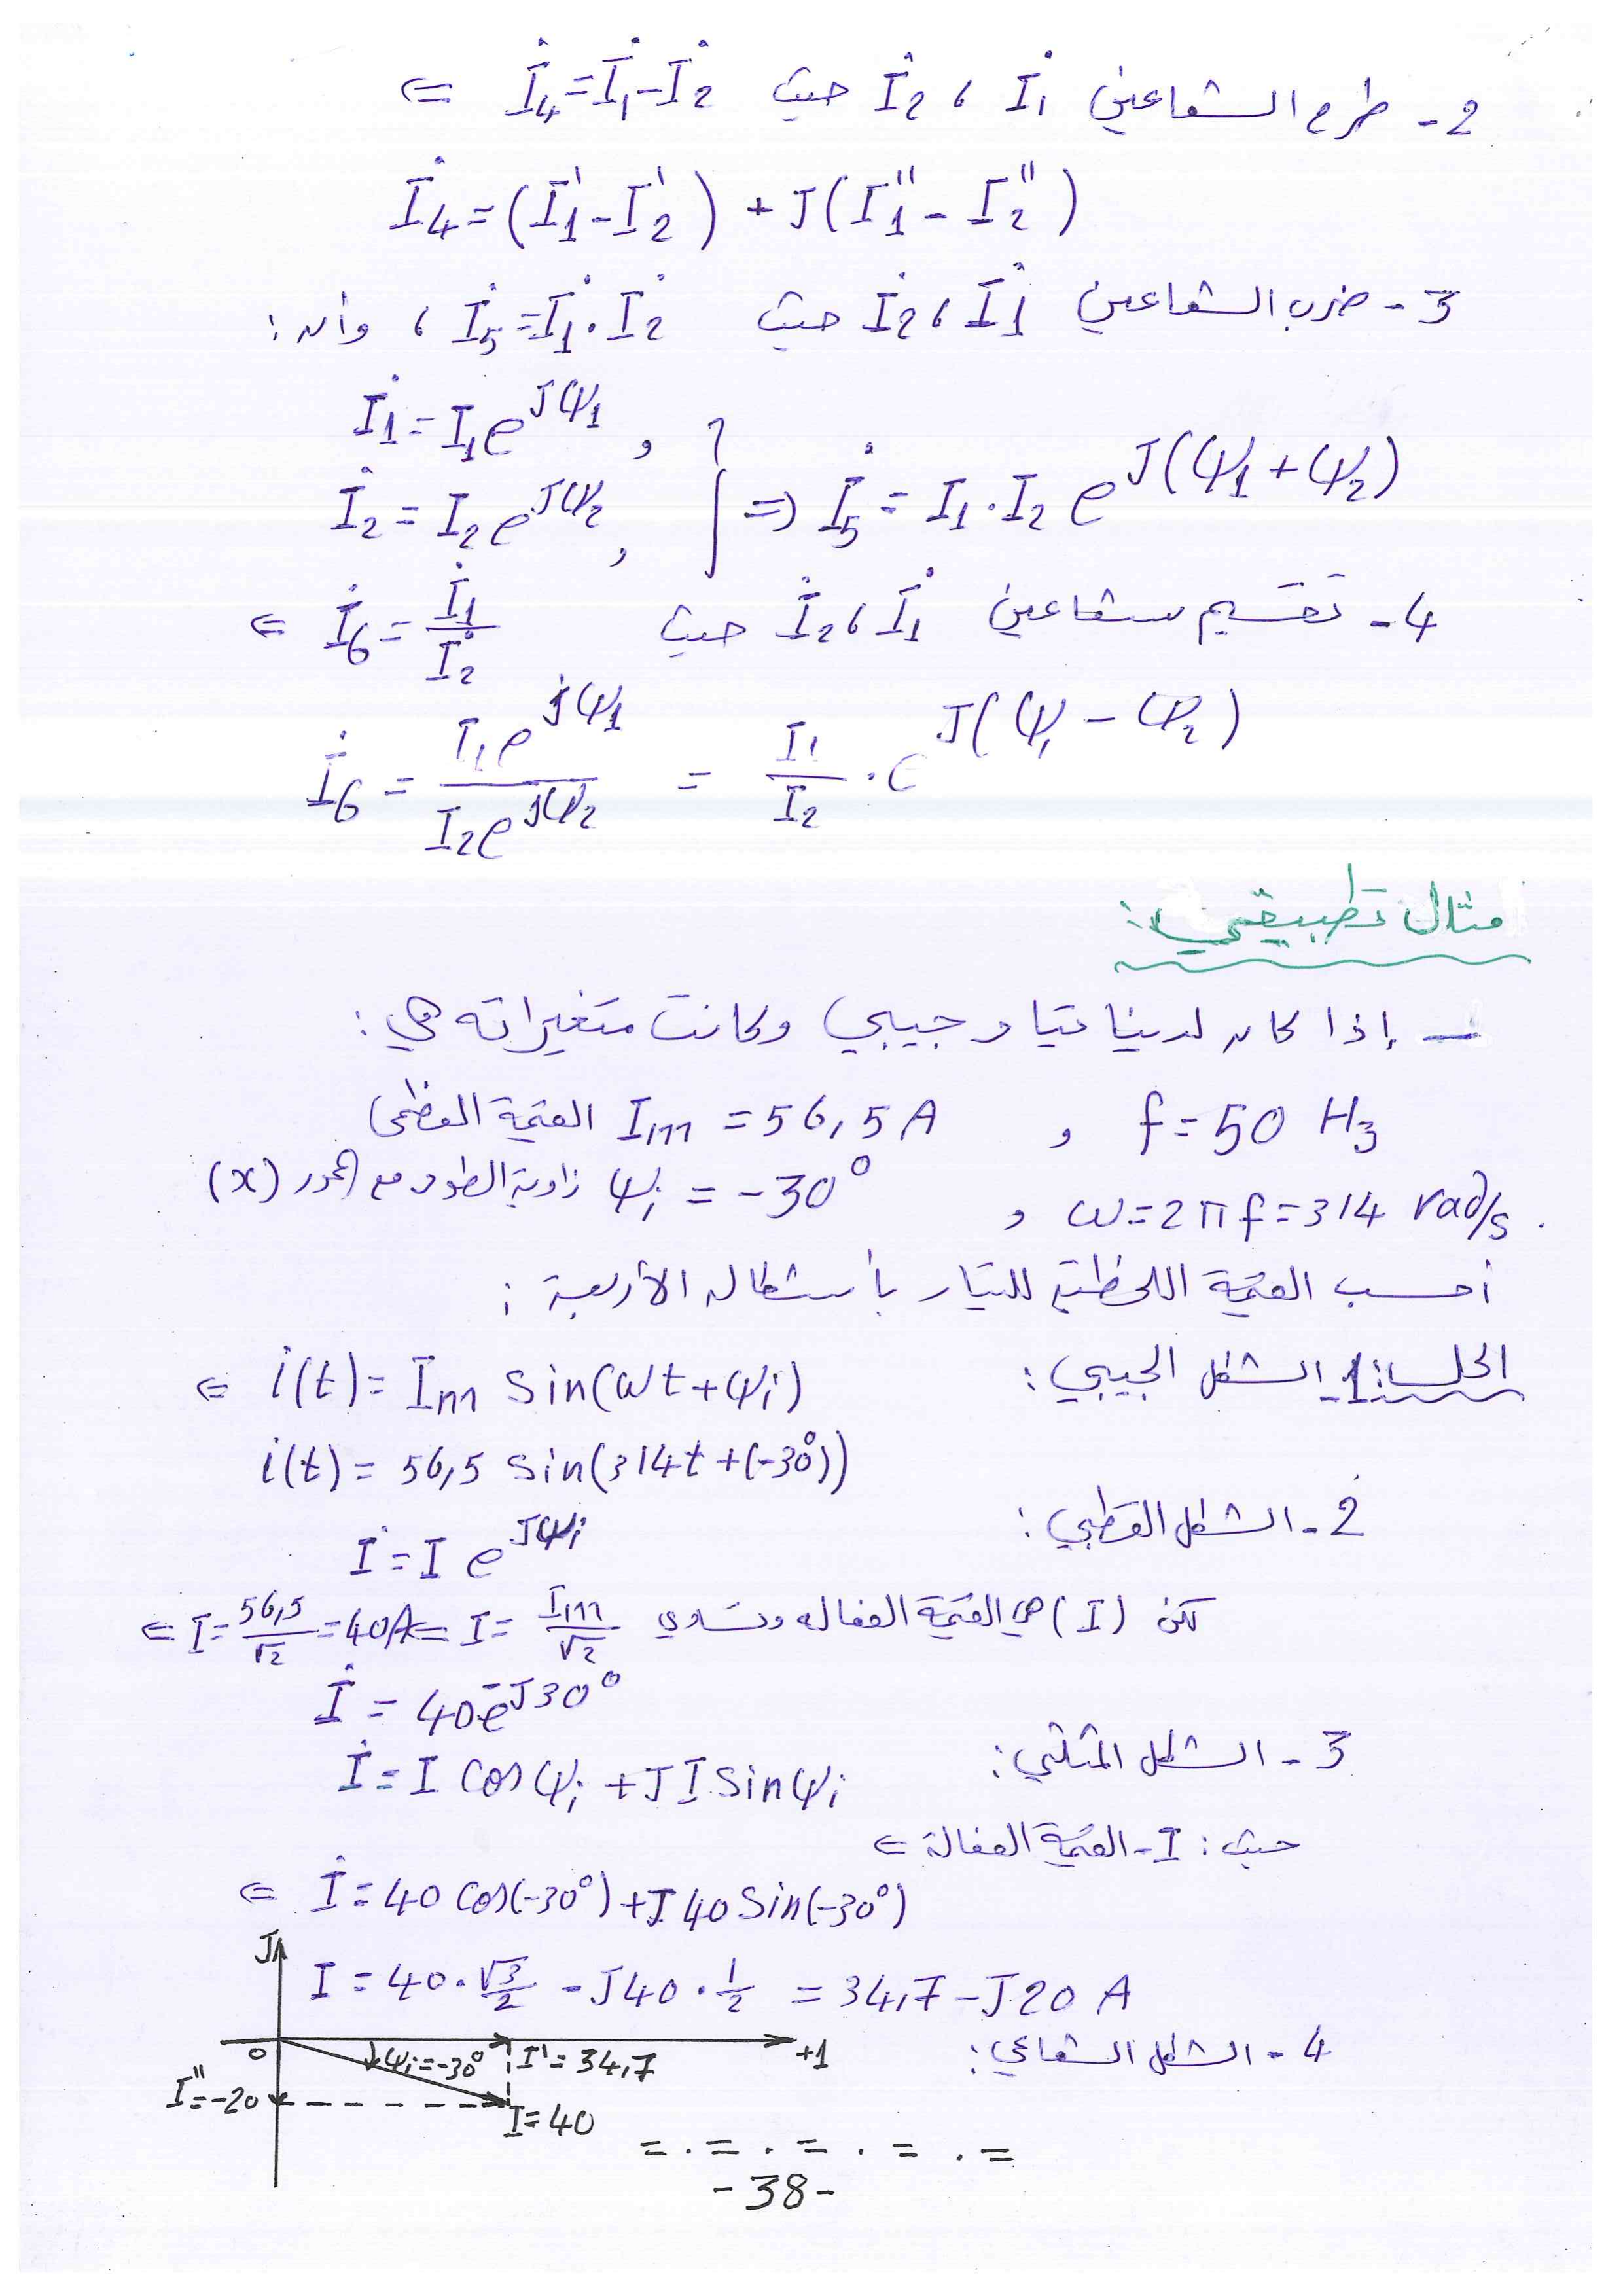 2- طرح الشعاعين İ₁ ، İ₂ حيث İ₄=İ₁-İ₂ ⇐
İ₄=(I'₁-I'₂) + J(I''₁ - I''₂)
3- ضرب الشعاعين İ₁ ، İ₂ حيث İ₅=İ₁.İ₂ ، وأن :
İ₁ = I₁e^{Jψ₁} ,
İ₂ = I₂e^{Jψ₂} , } ⇒ İ₅ = I₁.I₂ e^{J(ψ₁+ψ₂)}
4- تقسيم شعاعين İ₁ ، İ₂ حيث İ₆ = İ₁/İ₂ ⇐
İ₆ = I₁e^{Jψ₁} / I₂e^{Jψ₂} = I₁/I₂ . e^{J(ψ₁ - ψ₂)}
مثال تطبيقي :
- إذا كان لدينا تيار جيبي وكانت متغيراته هي :
f = 50 Hz , Im = 56,5 A القيمة العظمى
ω = 2πf = 314 rad/s . , ψi = -30° زاوية الطور مع المحور (x)
أحسب القيمة اللحظية للتيار بأشكاله الأربعة :
الحل : 1- الشكل الجيبي : i(t) = Im sin(ωt + ψi) ⇐
i(t) = 56,5 sin(314t + (-30°))
2- الشكل القطبي :
İ = I e^{Jψi}
لكن (I) هي القيمة الفعاله وتساوي I = Im/√2 ⇐ I = 56,5/√2 = 40A ⇐
İ = 40e^{-J30°}
3- الشكل المثلثي :
İ = I Cosψi + J I Sinψi
حيث : I - القيمة الفعالة ⇐
İ = 40 Cos(-30°) + J 40 Sin(-30°) ⇐
I = 40 . √3/2 - J40 . 1/2 = 34,7 - J20 A
4- الشكل الشعاعي :
J
0
+1
ψi = -30°
I' = 34,7
I'' = -20
I = 40
= . = . = . = . =
- 38 -